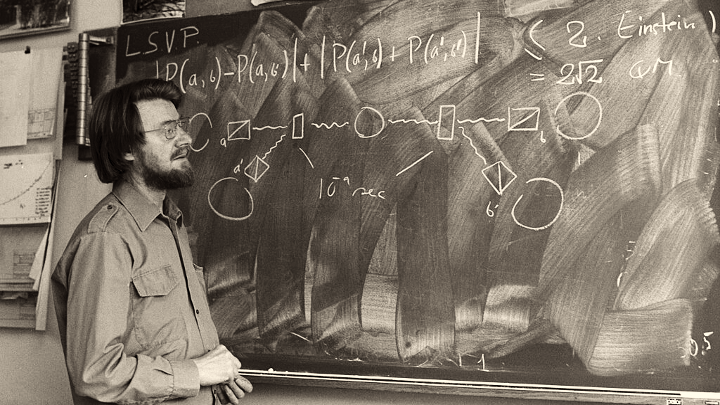 L.S.V.P.
|P(a,b) - P(a,b')| + |P(a',b) + P(a',b')| ≤ 2. Einstein)
= 2√2 QM
a b
a'
10⁻⁹ sec
b'